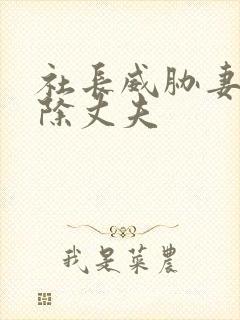 社长威胁妻
除丈夫
我是菜农